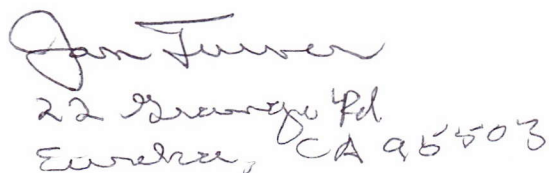 Jan Turner
22 Grange Rd
Eureka, CA 95503